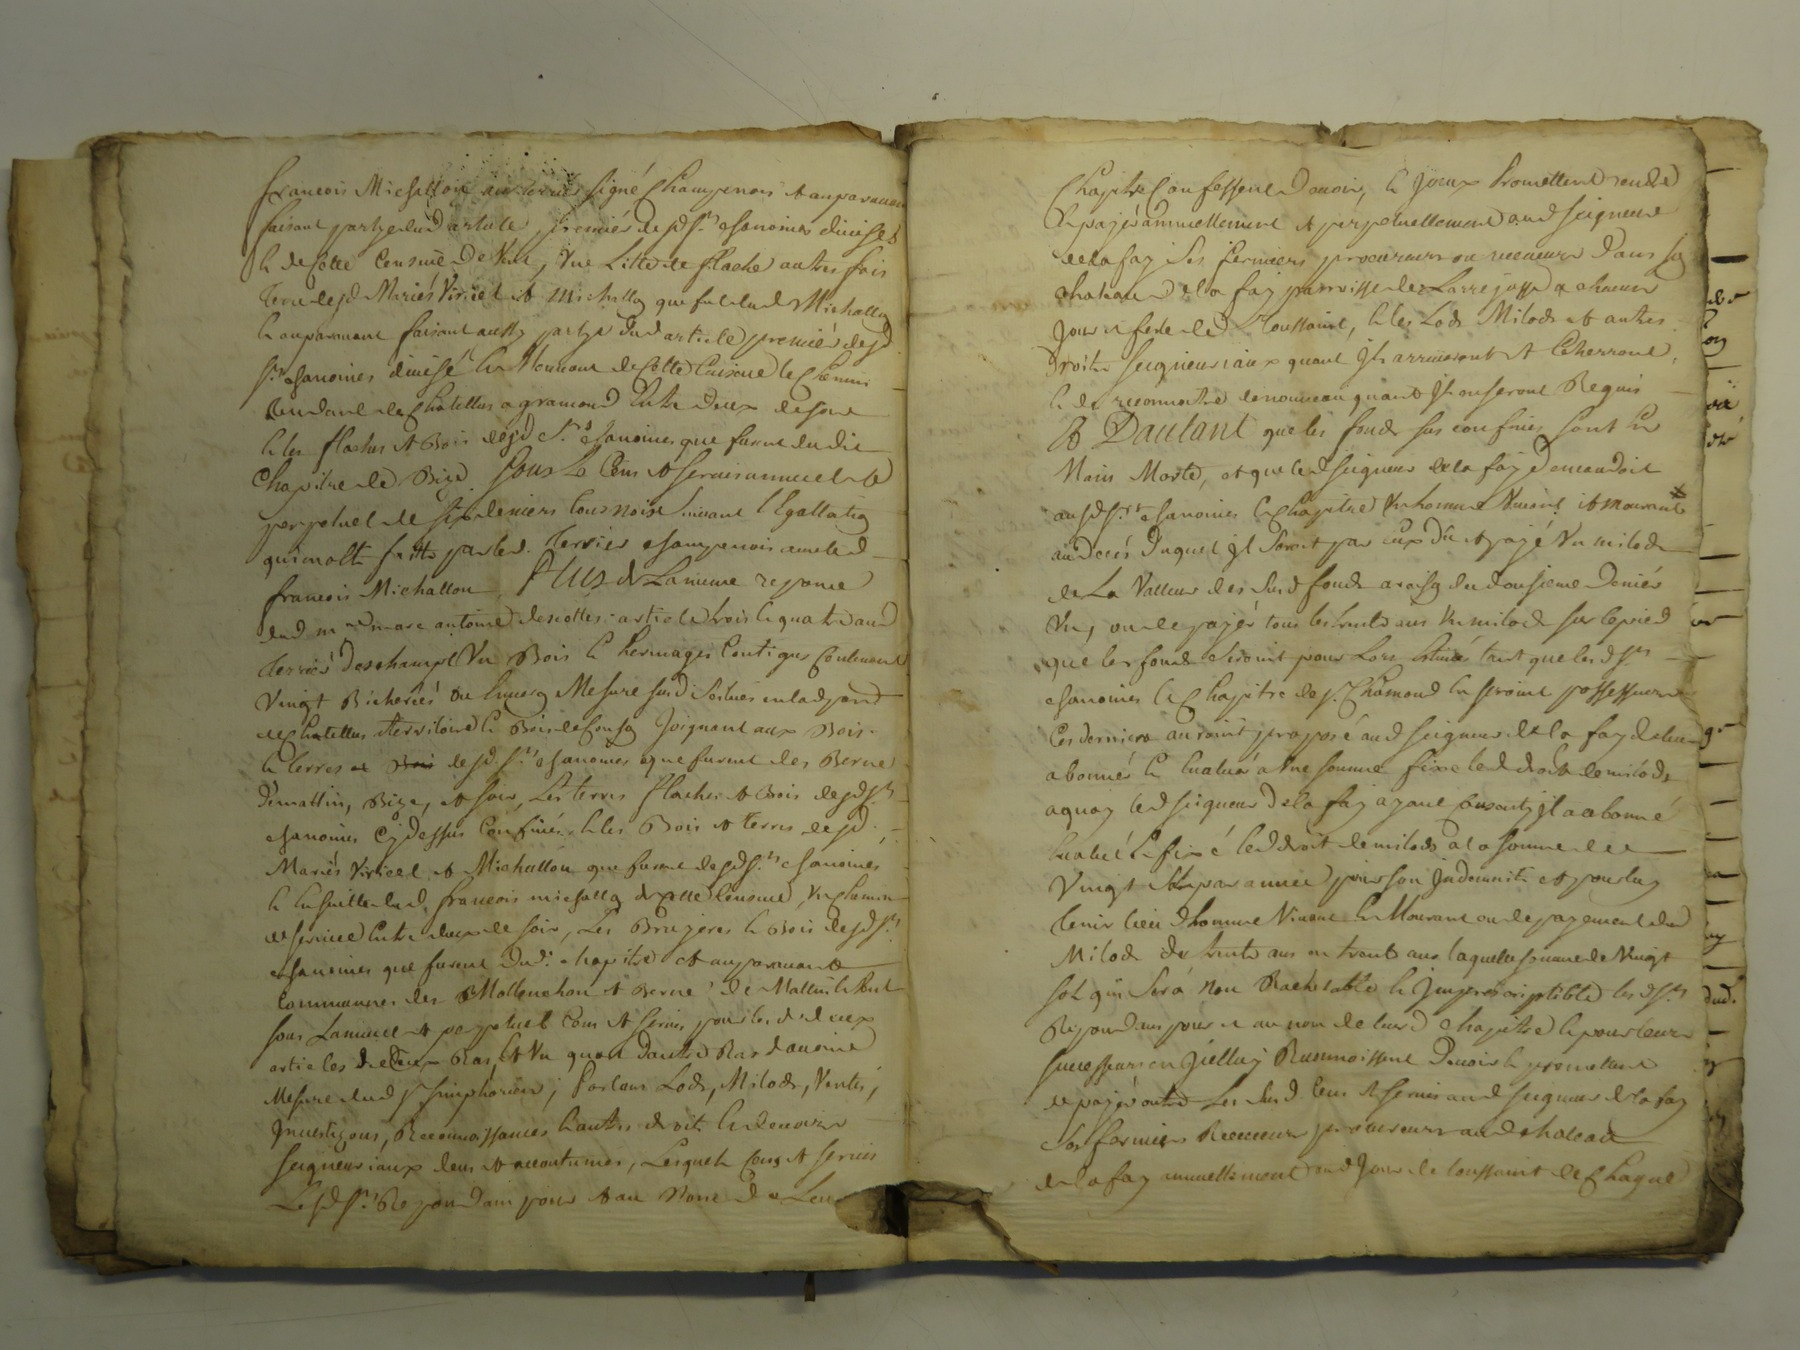 francois Michallon au terrier signé Champenois & auparavant
faisant partye dud article premier desd srs chanoines divisé &
& de Cotte Censive de vent, une Litte de flache autres fois
Terre desd Mariés Virieel & Michallon que fut dud Michallon
& auparavant faisant aussy partye dud article premier desd
srs chanoines divisé & Mouvant de Cotte Censive le Chemin
tendant de Chatellus a gramond Entre deux de soir
& les flaches & Bois desd srs chanoines que furent dudit
Chapitre de Bize. Sous Le Cens & servis annuel &
perpetuel de six deniers tournois suivant l'Egallation
faitte par led. Terrier champenois aud
francois Michallon. Plus de La meme reponce
dud mre marc antoine article trois & quatre aud
Terrier Deschamps Un Bois & hermages Contigus Contenant
Vingt Bicherées ou Environ Mesure susd Scitués en lad
de Chatellus territoire & Bois de Joignant aux Bois
& terres desd srs chanoines que furent des Berne
De mattin, Bize, & soir, Les terres flaches & Bois desd srs
chanoines Cy dessus Confinés & les Bois & terres desd
Mariés Virieel & Michallon que furent desd srs chanoines
& Ensuitte dud francois michallon de Cotte Censive, Un Chemin
de service Entre deux de soir, Les Bruyeres & Bois desd srs
chanoines que furent dud. chapitre & auparavant
Communnes des Mollenchon & Berne de Mattin & Vent
sous L'annuel & perpetuel Cens & servis pour les d. deux
articles de deux Ras, & Un quart d'autre Ras d'avoine
Mesure dud st simphorien, Portant Lods, Milods, Ventes,
Investizons, Reconnoissances & autres droits & devoirs
seigneuriaux deus & accoutumés, Lesquels Cens & servis
Lesd srs Repondans pour & au Nom de Leur
Chapitre Confessent devoir, & Iceux Promettent rendre
& payér annuellement & perpetuellement aud seigneur
de la fay ses fermiers procureurs ou receveurs Dans son
chateau de la fay parroisse de Larrajasse a chacun
jour & feste de Toussaint, & les Lods Milods & autres
Droits seigneuriaux quant Ils arriveront & Echerront,
& de reconnoitre de nouveau quant Ils en seront Requis
Et D'autant que les fonds sus confinés sont En
Main Morte, et que led seigneur de la fay Demandoit
ausd srs chanoines & Chapitre Un homme Vivant & mourant
au decés Duquel Il seroit par eux dû & payé Un milod
de La Valleur des susd fonds a raison du douzieme Deniér
ou de payér tous les trente ans Un milod sur le pied
que les fonds seroint pour Lors Estimés tant que lesd srs
chanoines & Chapitre de st Chamond En seroint possesseurs
Ces derniers auroint proposé aud seigneur de la fay de leur
abonnér & Evaluér a Une somme fixe led droit de milods,
a quoy led seigneur de la fay ayant Consenty Il a abonné
Evalué & fixé led droit de milods a la somme de
Vingt sols par année pour son Indemnité & pour luy
tenir lieu d'homme Vivant & Mourant ou de payement dud
Milod de trente ans en trente ans laquelle somme de Vingt
sols qui sera Non Rachetable & Imprescriptible lesd srs
Repondans pour & au nom de leurd chapitre & pour leurs
successeurs en Icelluy Reconnoissent Devoir & promettent
de payér outre Les susd Cens & servis aud seigneur de la fay
ses fermiers Receveurs procureurs aud chateau
de la fay annuellement aud jour de toussaint de Chaque